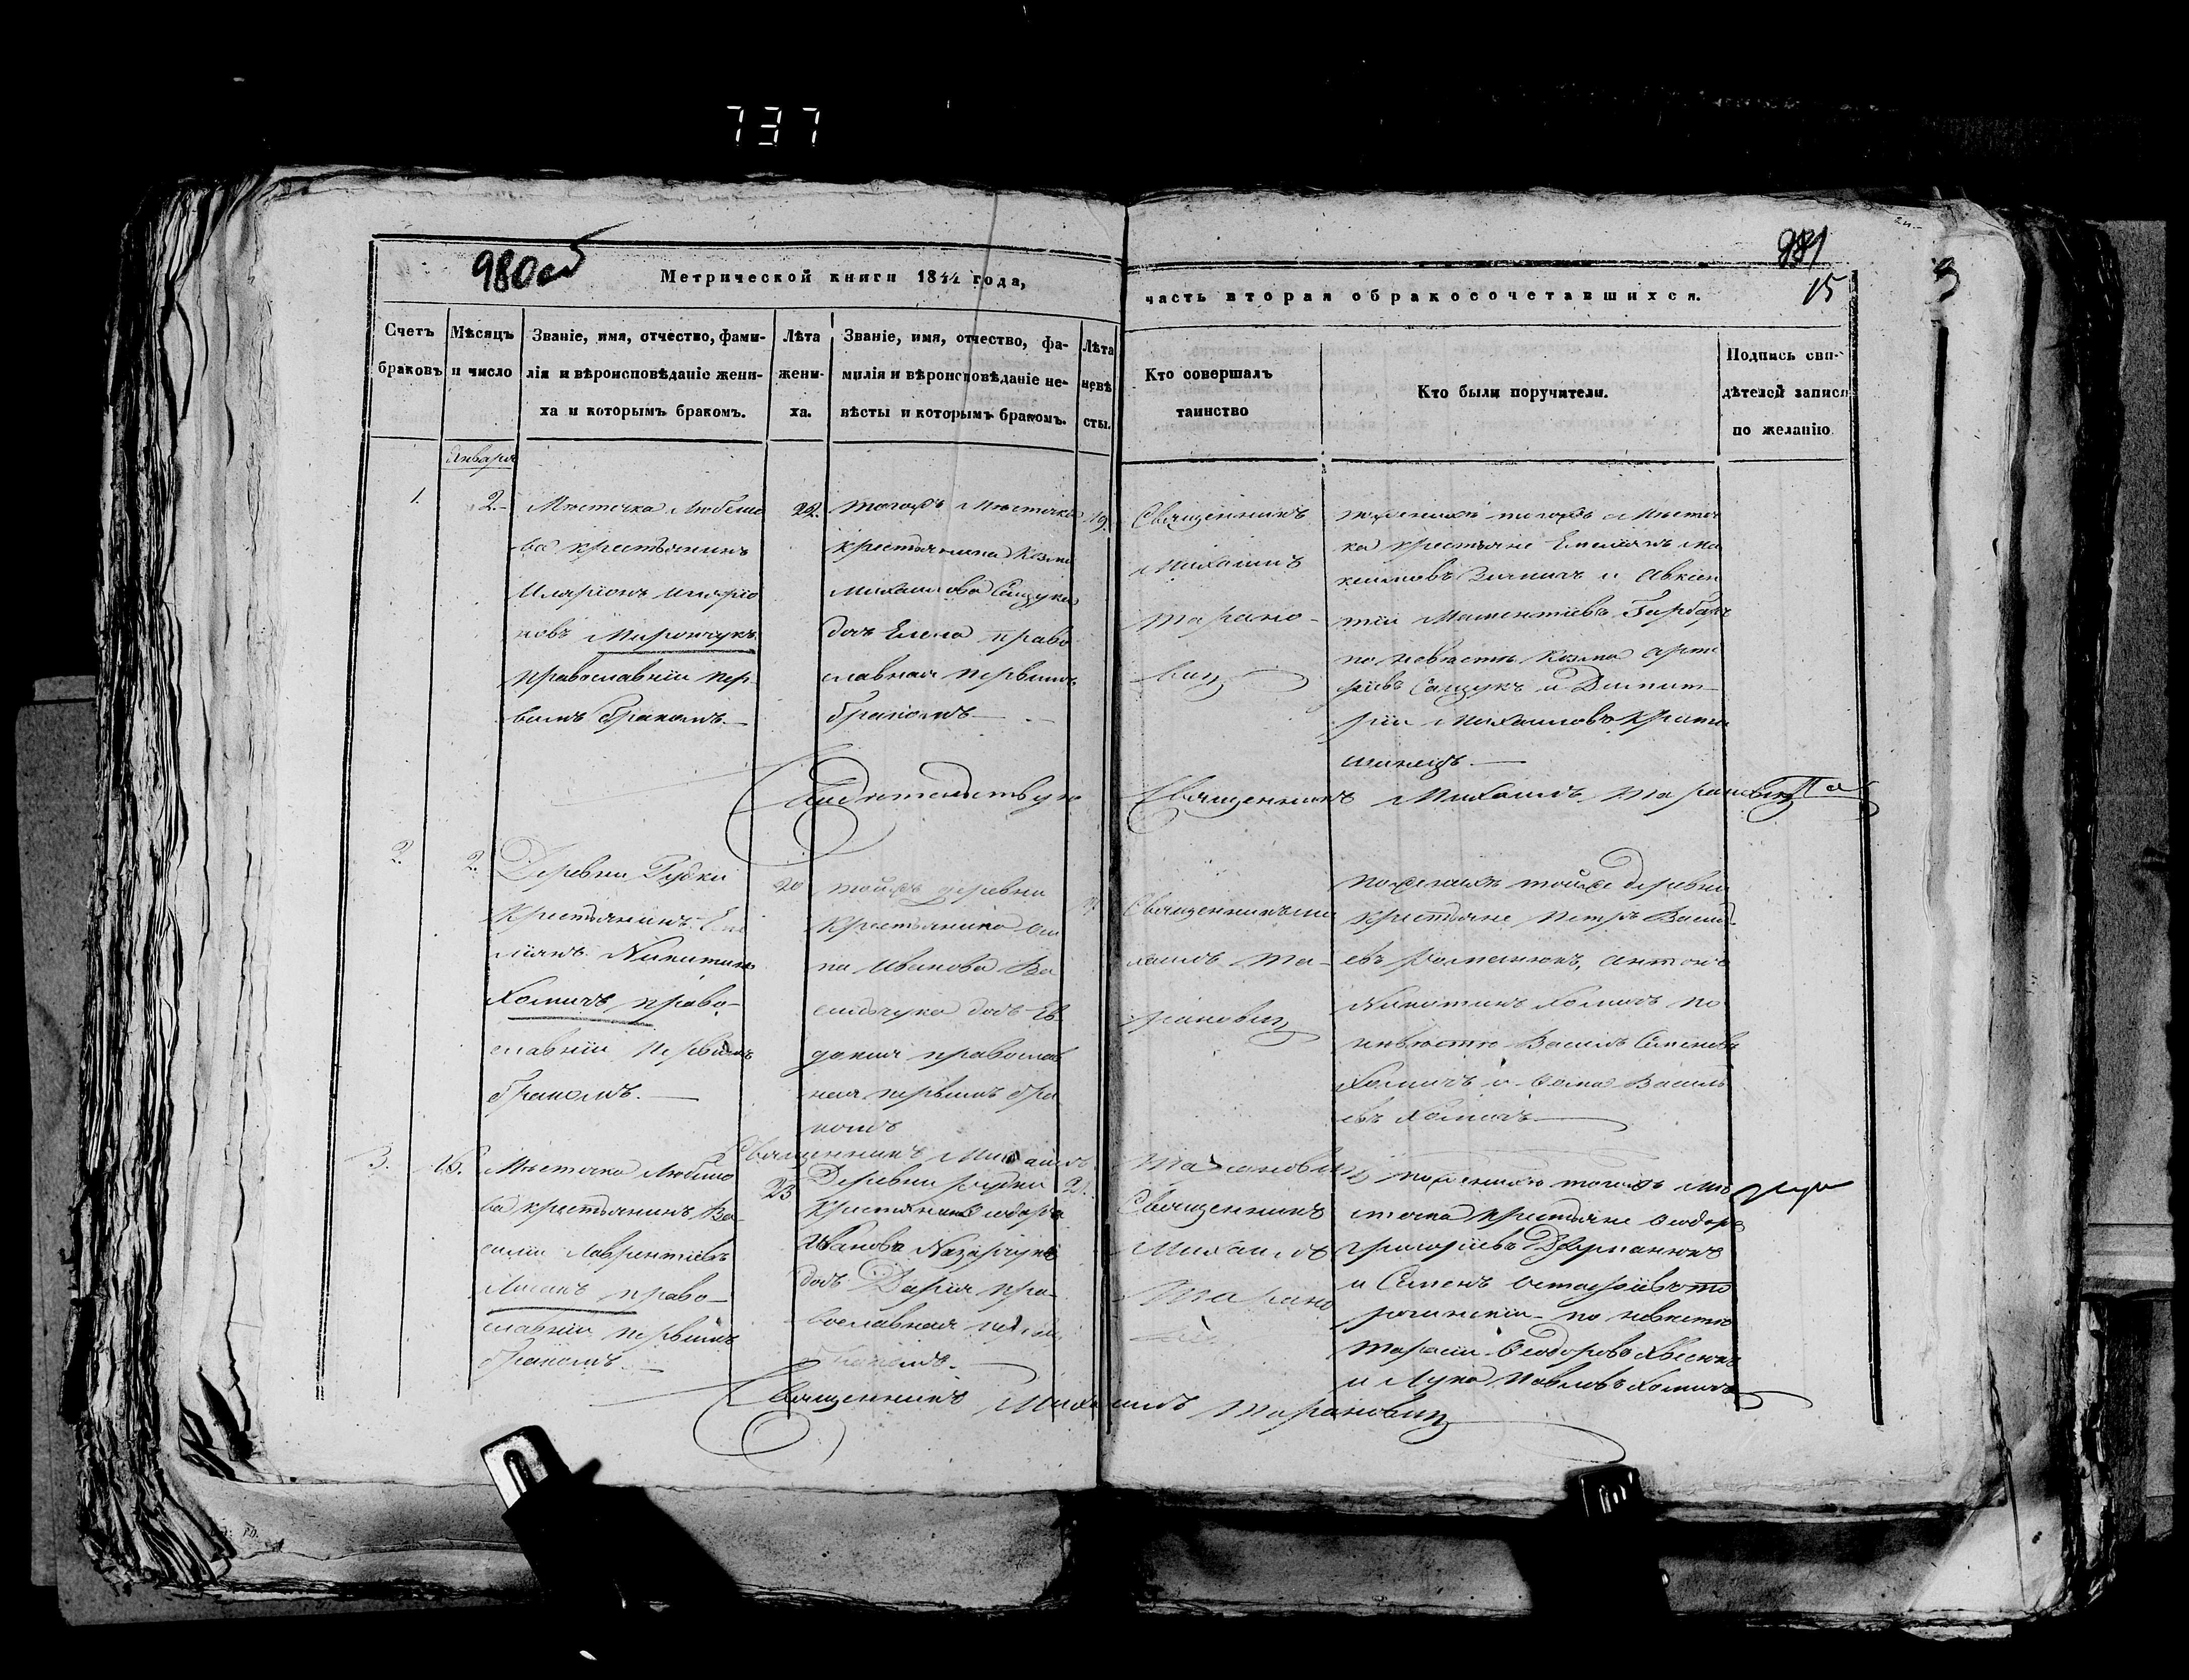 737
980об
Метрической книги 1844 года,
Счетъ браковъ
Мѣсяцъ и число
Званіе, имя, отчество, фами-
лія и вѣроисповѣданіе жени-
ха и которымъ бракомъ.
Лѣта
жени-
ха.
Званіе, имя, отчество, фа-
милія и вѣроисповѣданіе не-
вѣсты и которымъ бракомъ.
Лѣта
невѣ
сты.
981
15
часть вторая о бракосочетавшихся.
Кто совершалъ
таинство
Кто были поручители.
Подпись сви-
дѣтелей записи
по желанію
Января
1.
2.
Мѣстечка Любешо
ва крестьянинъ
Иляріонъ Иляріо
новъ Мирончукъ
православнїи пер
вымъ бракомъ.
22.
тогожъ Мѣстечка
крестьянина Козмы
Михаилова Сащука
дочь Елена право
славная первымъ
бракомъ
19.
Священникъ
Михаилъ
Тарано-
вич
по женихѣ тогожъ Мѣстеч
ка крестьяне Емеліянъ Ма
ксимовъ и Авксен
тіи
по невѣстѣ Козма
Сащукъ и Димит
рїи Михаиловъ
Священникъ Михаилъ Таранович
2.
2.
Деревни Рудки
Крестьянинъ Еме
ліянъ Никитинъ
Хомичъ право-
славнїи первымъ
бракомъ.
20
тойжъ деревни
Крестьянина
па Иванова Ва
сильчука дочь Ев
докия православ
ная первымъ бра
комъ
Священникъ Ми
хаилъ Та-
ранович
по женихѣ тойже деревни
крестьяне Петръ Василі
евъ Романюкъ, Антонъ
Никитинъ Хомичъ по
невѣстѣ Василь Семеновъ
Хомичъ и Ѳома Василь
евъ Хомичъ
Священникъ Михаилъ Таранович
3.
16.
Мѣстечка Любешо
ва крестьянинъ Ва-
силіи Лаврентіевъ
право-
славнїи первымъ
бракомъ.
23
Деревни Рудки
Крестьянина Ѳеодора
Иванова Назарчука
дочь Дарія пра-
вославная
бракомъ.
21.
Священникъ
Михаилъ
Тарано
вич
по женихѣ тогожъ Мѣ
стечка крестьяне Ѳеодоръ
Григоріевъ
и Семенъ
по невѣстѣ
Тарасїи Ѳеодоровъ
и Лука Павловъ Хомичъ
Священникъ Михаилъ Таранович